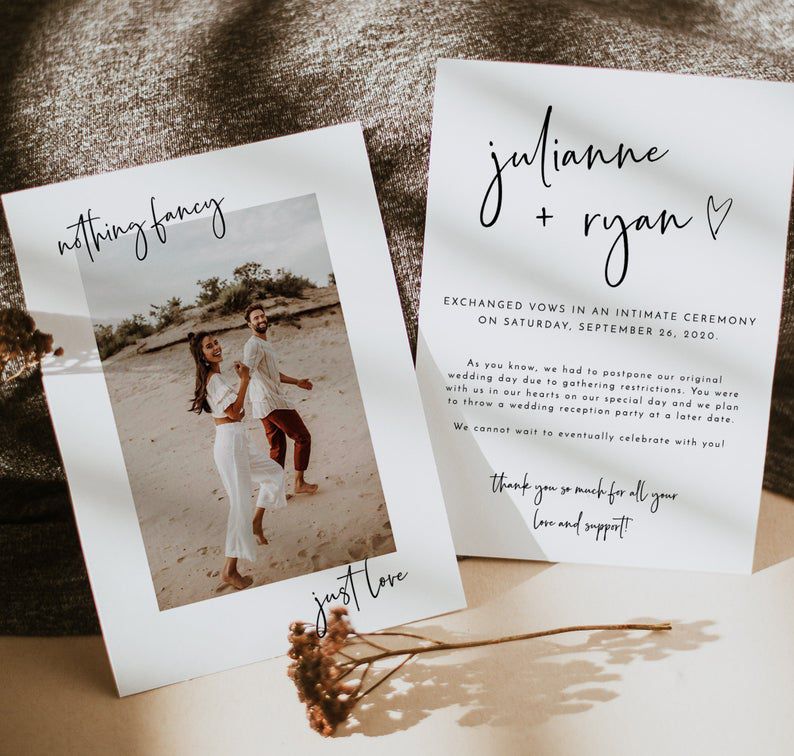 nothing fancy
just love
julianne
+ ryan
EXCHANGED VOWS IN AN INTIMATE CEREMONY
ON SATURDAY, SEPTEMBER 26, 2020.
As you know, we had to postpone our original
wedding day due to gathering restrictions. You were
with us in our hearts on our special day and we plan
to throw a wedding reception party at a later date.
We cannot wait to eventually celebrate with you!
thank you so much for all your
love and support!